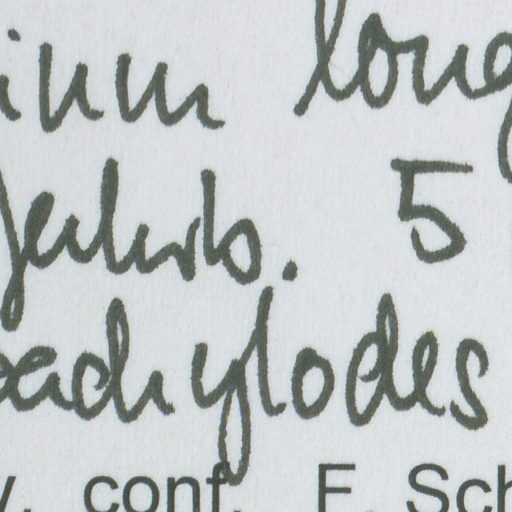 inum long
Jahrb. 5
achylodes
v. conf. F. Sch